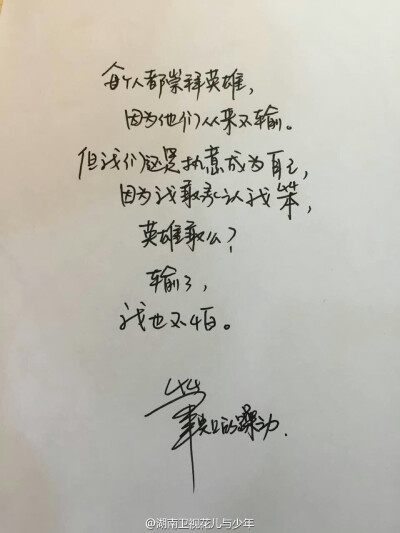 每个人都崇拜英雄，
因为他们从来不输。
但我们还是执意成为自己，
因为我敢承认我笨，
英雄敢么？
输了，
我也不怕。
笨
的躁动.
@湖南卫视花儿与少年